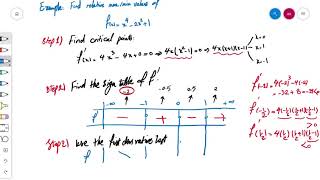 Example: Find relative max/min value of
f(x) = x⁴ - 2x² + 1
Step 1) Find critical points:
f'(x) = 4x³ - 4x = 0 => 4x(x²-1) = 0 => 4x(x+1)(x-1)
x=0
x=-1
x=1
Step 2) Find the sign table of f'
-2 -0.5 0.5 2
-∞ -1 0 1 +∞
f' - + - +
f'(-2) = 4(-2)³ - 4(-2)
= -32 + 8 = -24
f'(-½) = 4(-½)(-½+1)(-½-1)
> 0
f'(½) = 4(½)(½+1)(½-1)
< 0
Step 2) use the first derivative test
f